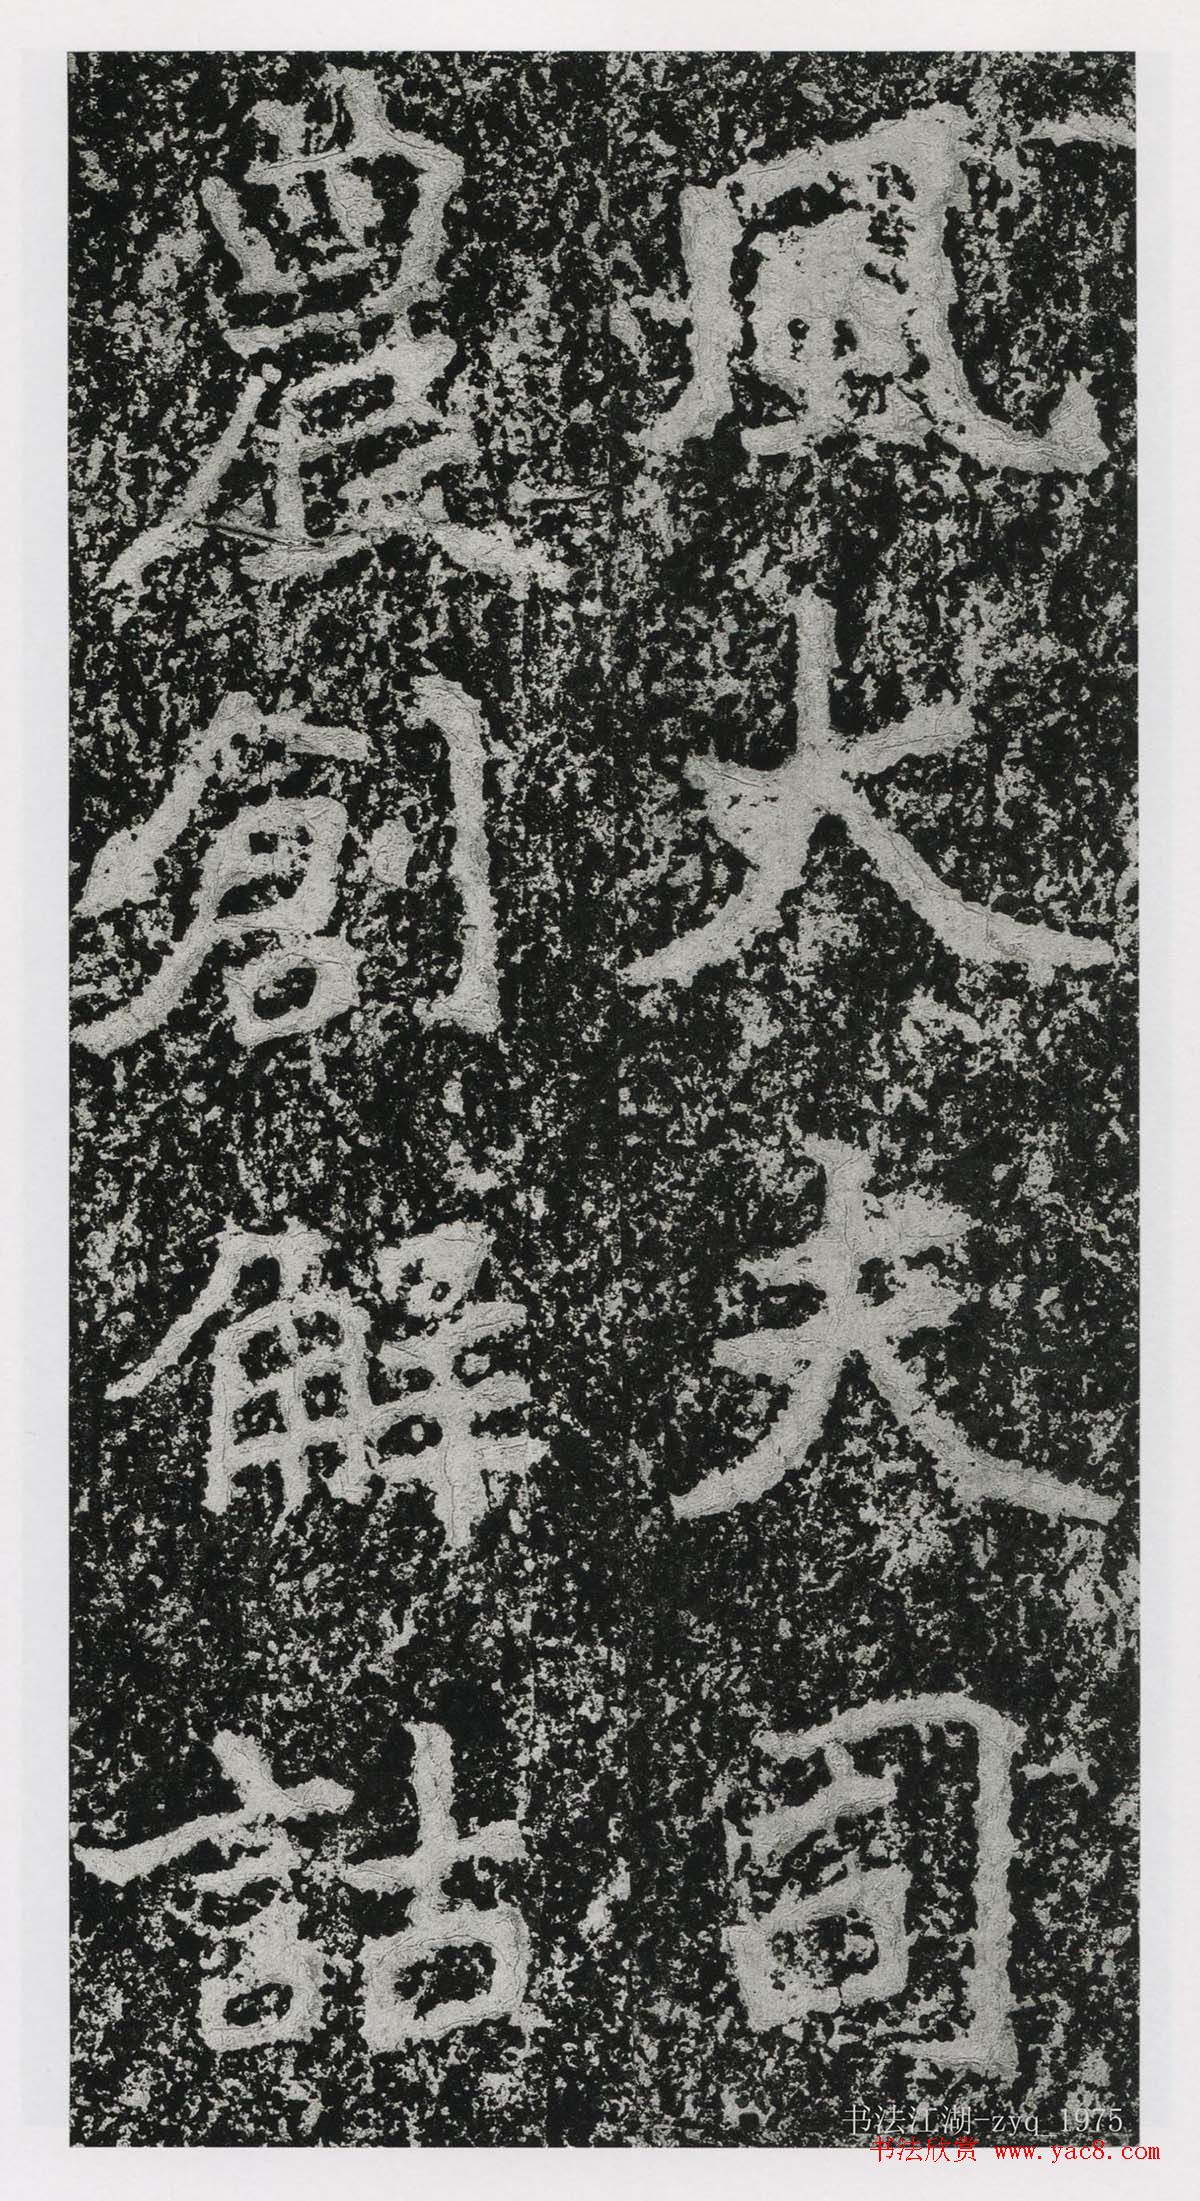 風大夫司
農創解詁
书法江湖-zyq_1975
书法欣赏 www.yac8.com